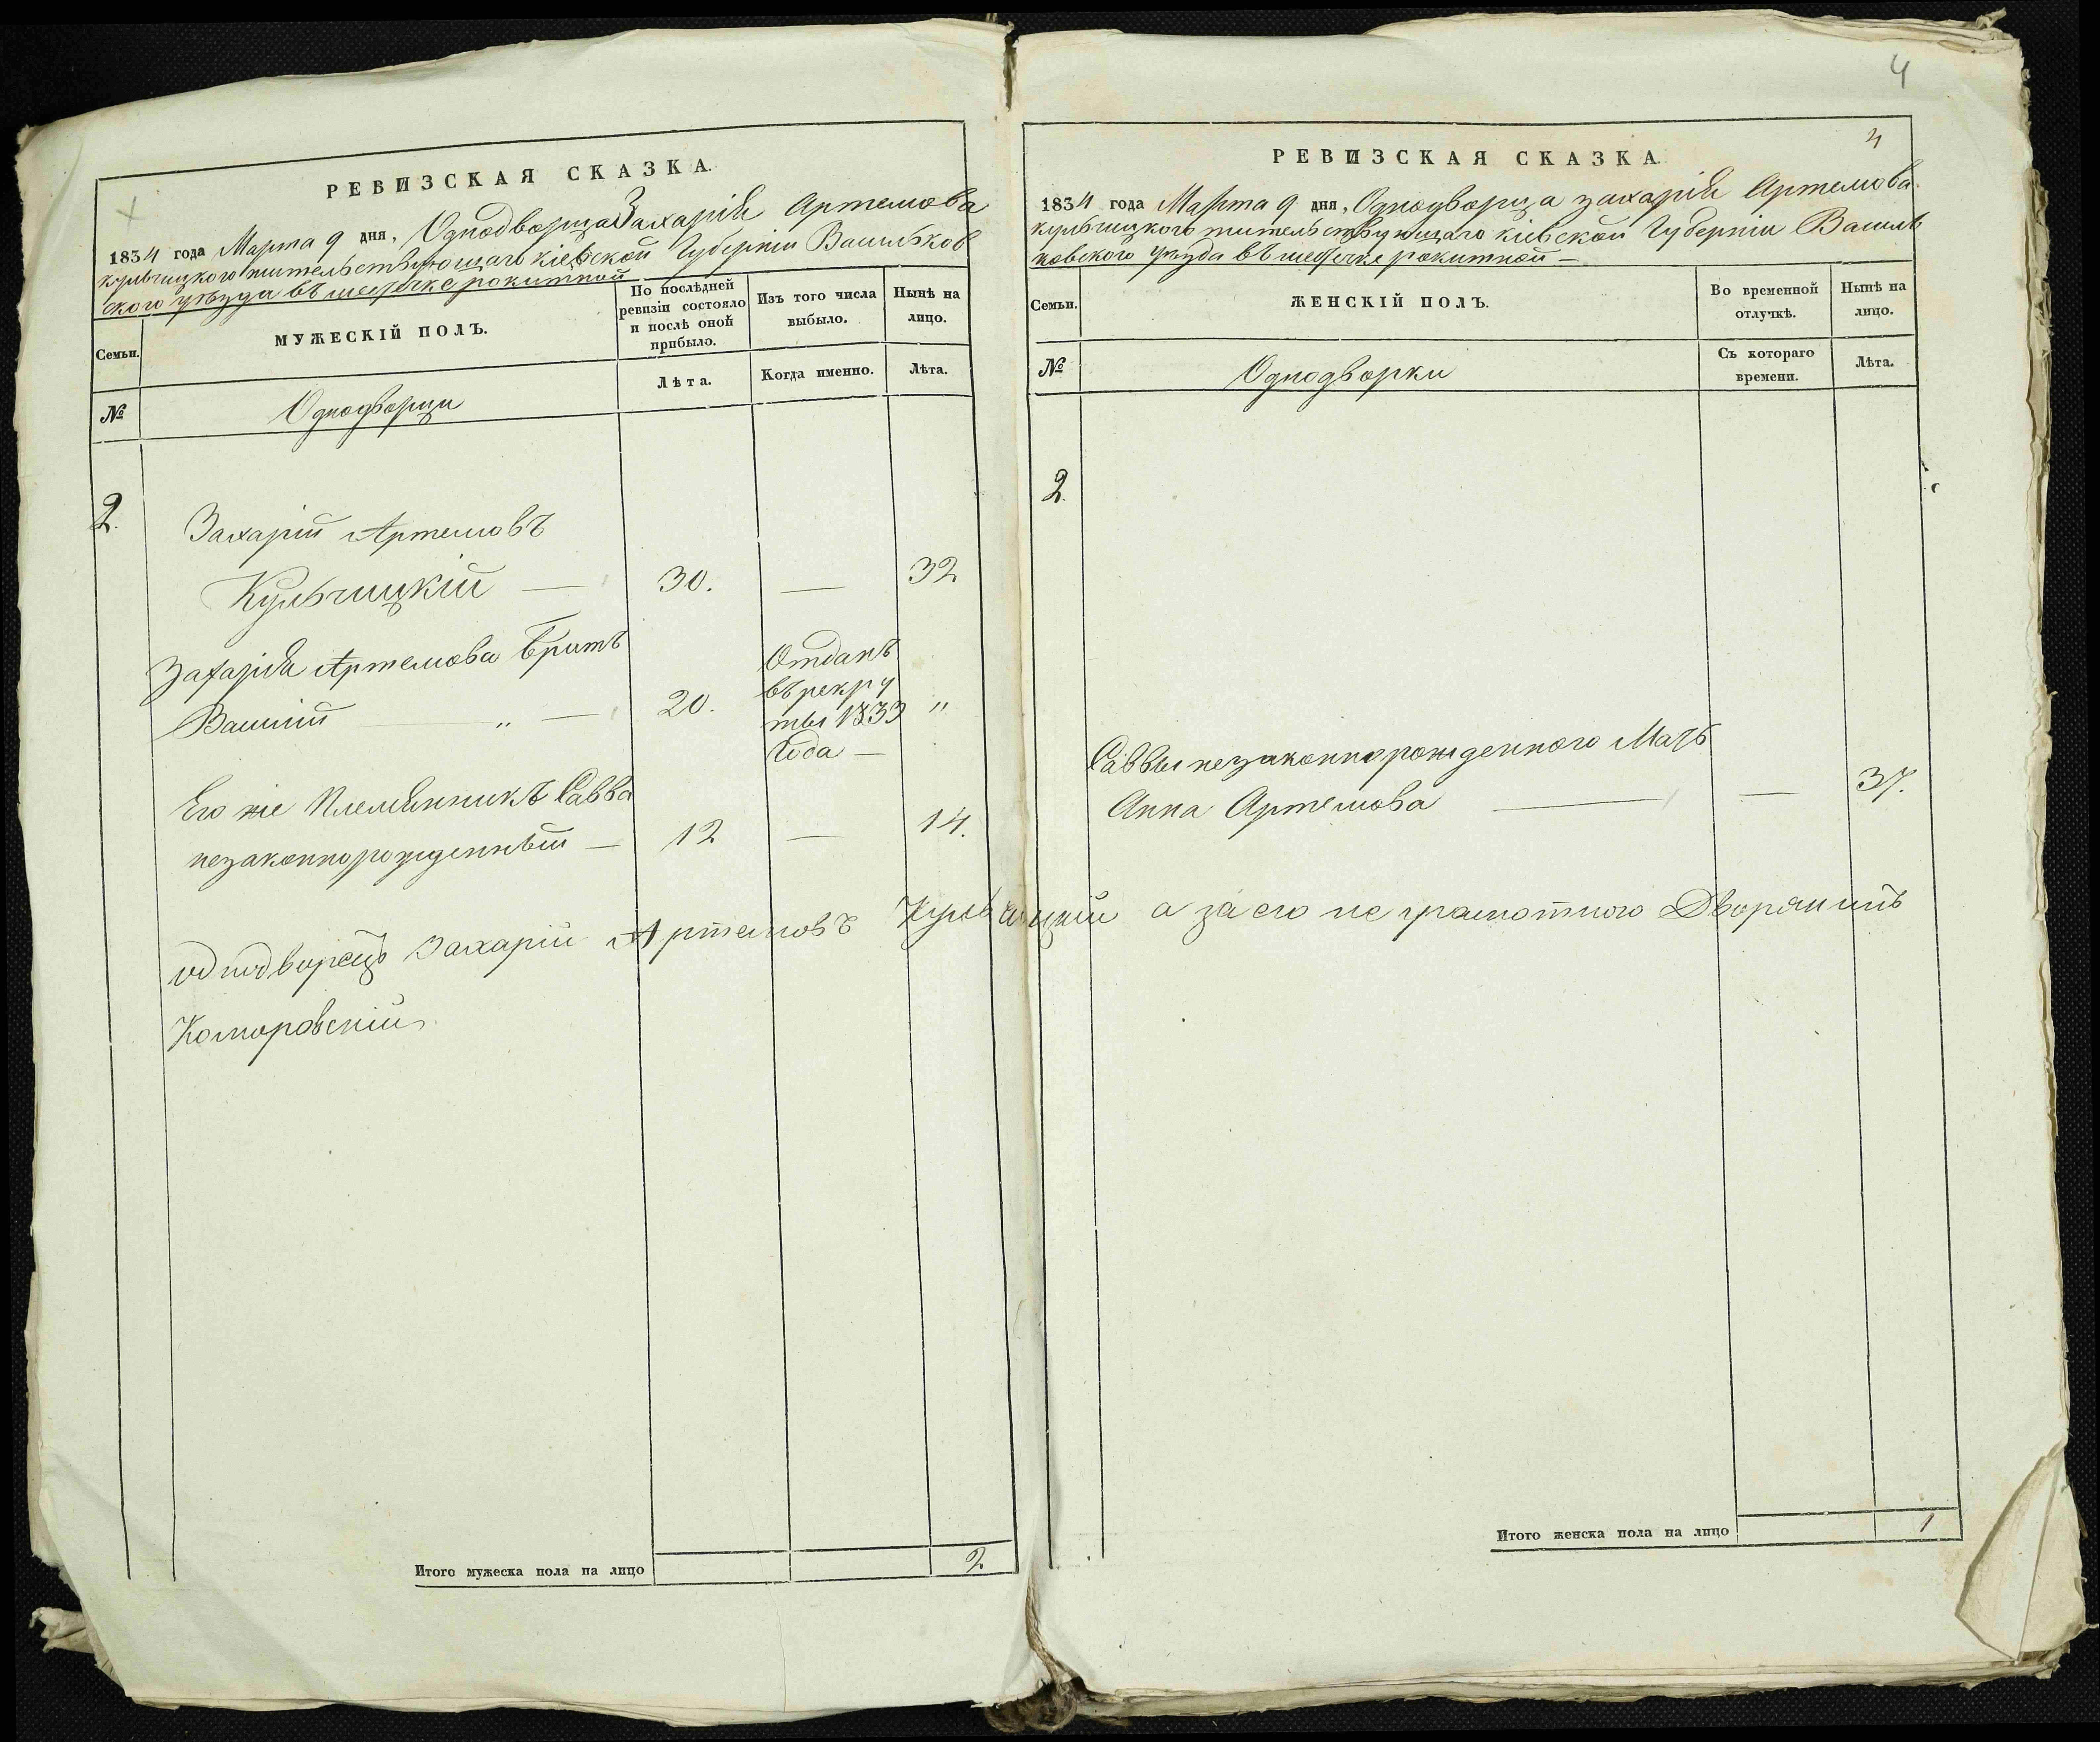 4
РЕВИЗСКАЯ СКАЗКА.
1834 года Марта 9 дня, Однодворца Захарія Артемова
кульчицкого жительствующаго кіевской Губерніи Васильков
ского уѣзда въ местечке рокитной
Семьи.
МУЖЕСКІЙ ПОЛЪ.
По послѣдней ревизіи состояло и послѣ оной прибыло.
Изъ того числа выбыло.
Нынѣ на лицо.
№
Однодворцы
Лѣта.
Когда именно.
Лѣта.
2.
Захарій Артемовъ
Кульчицкій — 30. — 32
Захарія Артемова братъ
Василій „ — 20. Отданъ въ рекру ты 1833 года — „
Его же Племянникъ Савва
незаконнорожденный — 12 — 14.
однодворецъ Захарій Артемовъ Кульчицкій а за его не грамотного Дворянинъ
Комаровскій
Итого мужеска пола на лицо 2
4
РЕВИЗСКАЯ СКАЗКА.
1834 года Марта 9 дня, Однодворца захарія Артемова
кульчицкого жительствующаго кіевской Губерніи Василь
ковского уѣзда въ местечке рокитной —
Семьи.
ЖЕНСКІЙ ПОЛЪ.
Во временной отлучкѣ.
Нынѣ на лицо.
№
Однодворки
Съ котораго времени.
Лѣта.
2.
Саввы незаконнорожденного Мать
Анна Артемова — — 37.
Итого женска пола на лицо 1